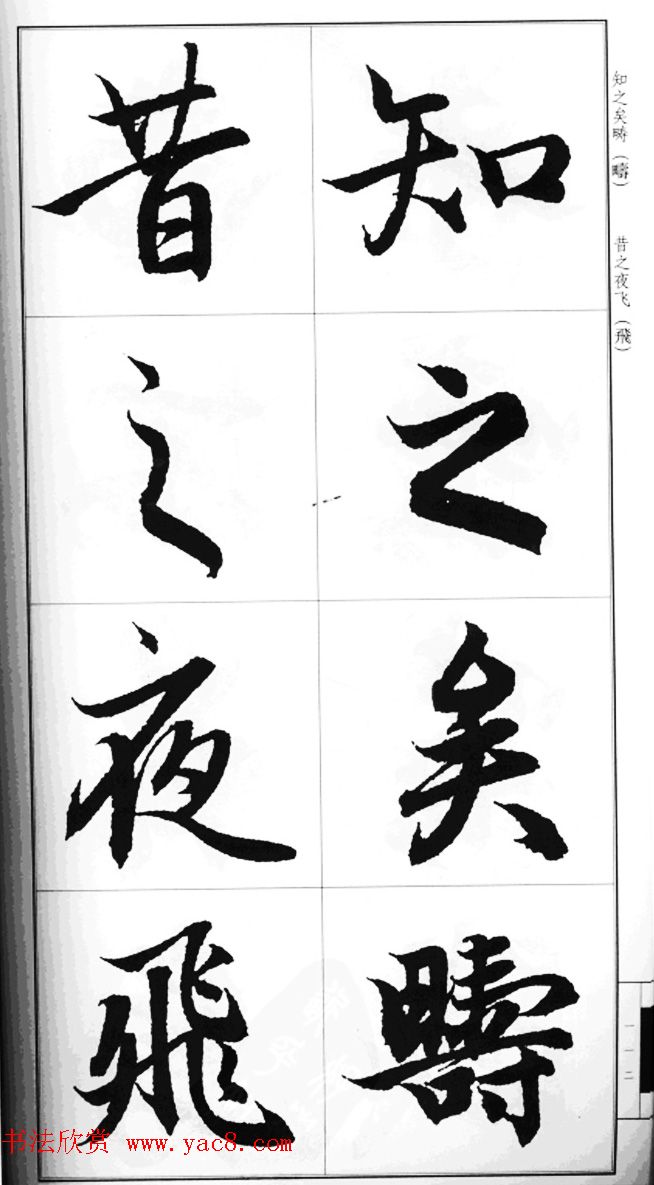 知之矣疇
昔之夜飛
知之矣畴（疇）　昔之夜飞（飛）
一一二
书法欣赏 www.yac8.com